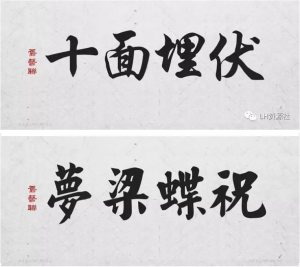 十面埋伏
LH资源社
夢梁蝶祝